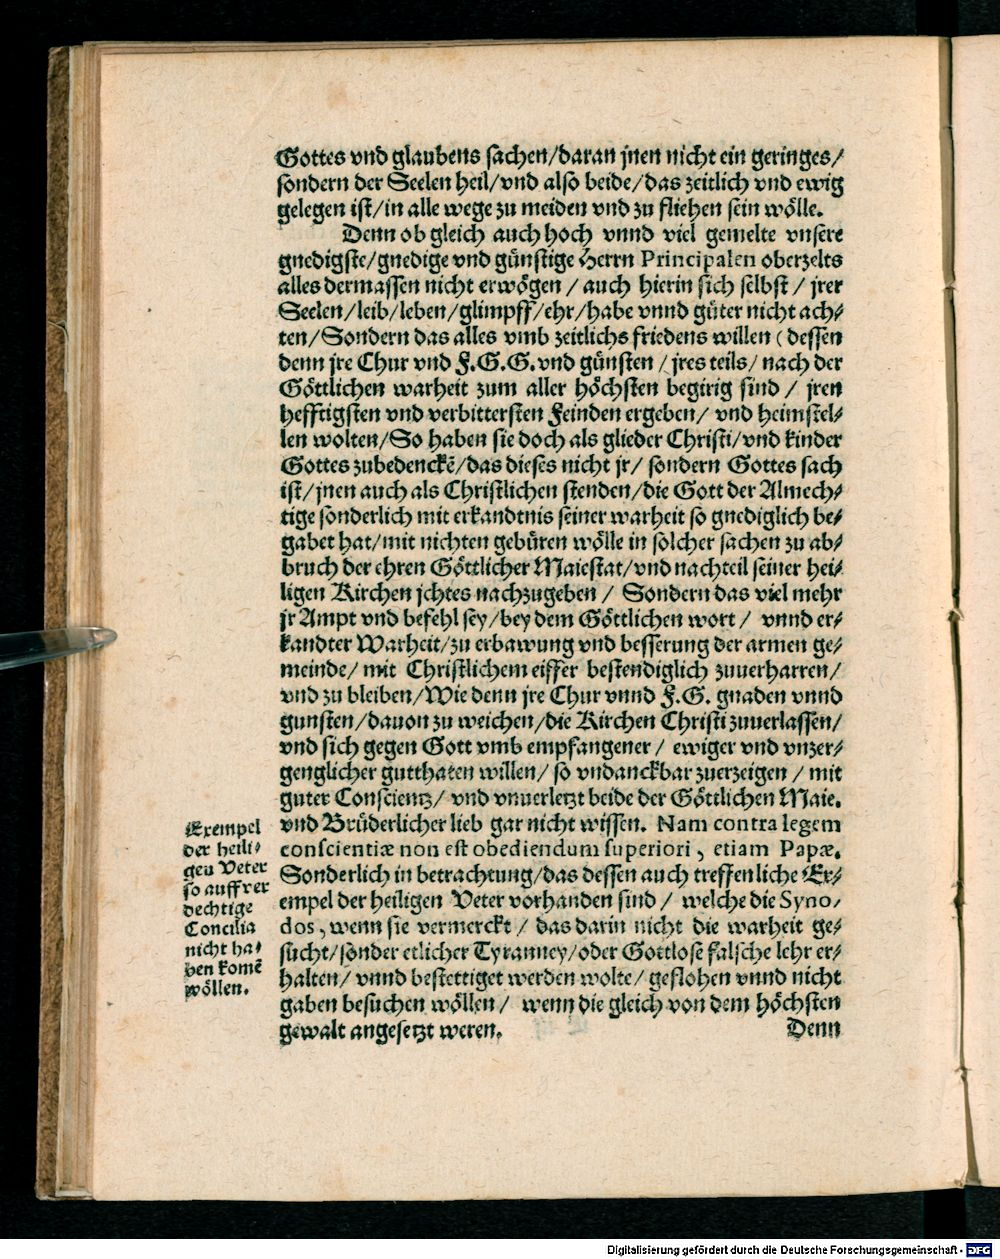 Gottes vnd glaubens sachen/daran jnen nicht ein geringes/
sondern der Seelen heil/vnd also beide/das zeitlich vnd ewig
gelegen ist/in alle wege zu meiden vnd zu fliehen sein wölle.
Denn ob gleich auch hoch vnnd viel gemelte vnsere
gnedigste/gnedige vnd günstige Herrn Principalen oberzelts
alles dermassen nicht erwögen / auch hierin sich selbst / jrer
Seelen/leib/leben/glimpff/ehr/habe vnnd güter nicht ach⸗
ten/Sondern das alles vmb zeitlichs friedens willen (dessen
denn jre Chur vnd F.G.G.vnd günsten / jres teils/ nach der
Göttlichen warheit zum aller höchsten begirig sind / jren
hefftigsten vnd verbittersten Feinden ergeben/ vnd heimstel⸗
len wolten/So haben sie doch als glieder Christi/vnd kinder
Gottes zubedenckē/das dieses nicht jr/ sondern Gottes sach
ist/jnen auch als Christlichen stenden/die Gott der Almech⸗
tige sonderlich mit erkandtnis seiner warheit so gnediglich be⸗
gabet hat/mit nichten gebüren wölle in solcher sachen zu ab⸗
bruch der ehren Göttlicher Maiestat/vnd nachteil seiner hei⸗
ligen Kirchen jchtes nachzugeben / Sondern das viel mehr
jr Ampt vnd befehl sey/bey dem Göttlichen wort / vnnd er⸗
kandter Warheit/zu erbawung vnd besserung der armen ge⸗
meinde/ mit Christlichem eiffer bestendiglich zuuerharren/
vnd zu bleiben/Wie denn jre Chur vnnd F.G. gnaden vnnd
gunsten/dauon zu weichen/die Kirchen Christi zuuerlassen/
vnd sich gegen Gott vmb empfangener / ewiger vnd vnzer⸗
genglicher gutthaten willen/ so vndanckbar zuerzeigen / mit
guter Conscientz/ vnd vnuerletzt beide der Göttlichen Maie.
vnd Brüderlicher lieb gar nicht wissen. Nam contra legem
conscientiæ non est obediendum superiori, etiam Papæ.
Sonderlich in betrachtung/das dessen auch treffenliche Ex⸗
empel der heiligen Veter vorhanden sind / welche die Syno⸗
dos, wenn sie vermerckt / das darin nicht die warheit ge⸗
sucht/sonder etlicher Tyranney/oder Gottlose falsche lehr er⸗
halten/ vnnd bestettiget werden wolte/ geflohen vnnd nicht
gaben besuchen wöllen/ wenn die gleich von dem höchsten
gewalt angesetzt weren. Denn
Exempel
der heili⸗
gen Veter
so auff ver
dechtige
Concilia
nicht ha⸗
ben komē
wöllen.
Digitalisierung gefördert durch die Deutsche Forschungsgemeinschaft - DFG